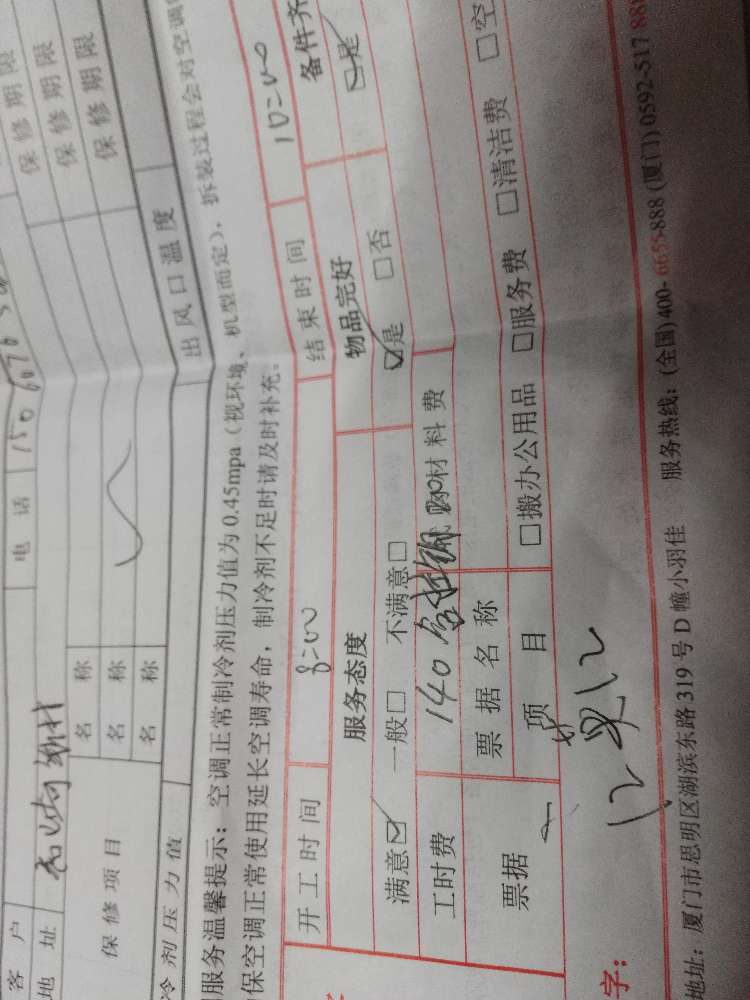 客户
电话 150
地址
保修期限
保修期限
保修期限
保修项目
名称
名称
名称
冷剂压力值
出风口温度
服务温馨提示：空调正常制冷剂压力值为0.45mpa（视环境、机型而定），拆装过程会对空调
保空调正常使用延长空调寿命，制冷剂不足时请及时补充。
开工时间 8:00 结束时间 10:00
服务态度 物品完好 备件齐
满意☑ 一般□ 不满意□ ☑是 □否 ☑是
工时费 140 材料费
票据 票据名称
项目 □搬办公用品 □服务费 □清洁费 □空
字：
地址：厦门市思明区湖滨东路319号D幢小羽佳 服务热线：(全国)400-6655-888 (厦门) 0592-517